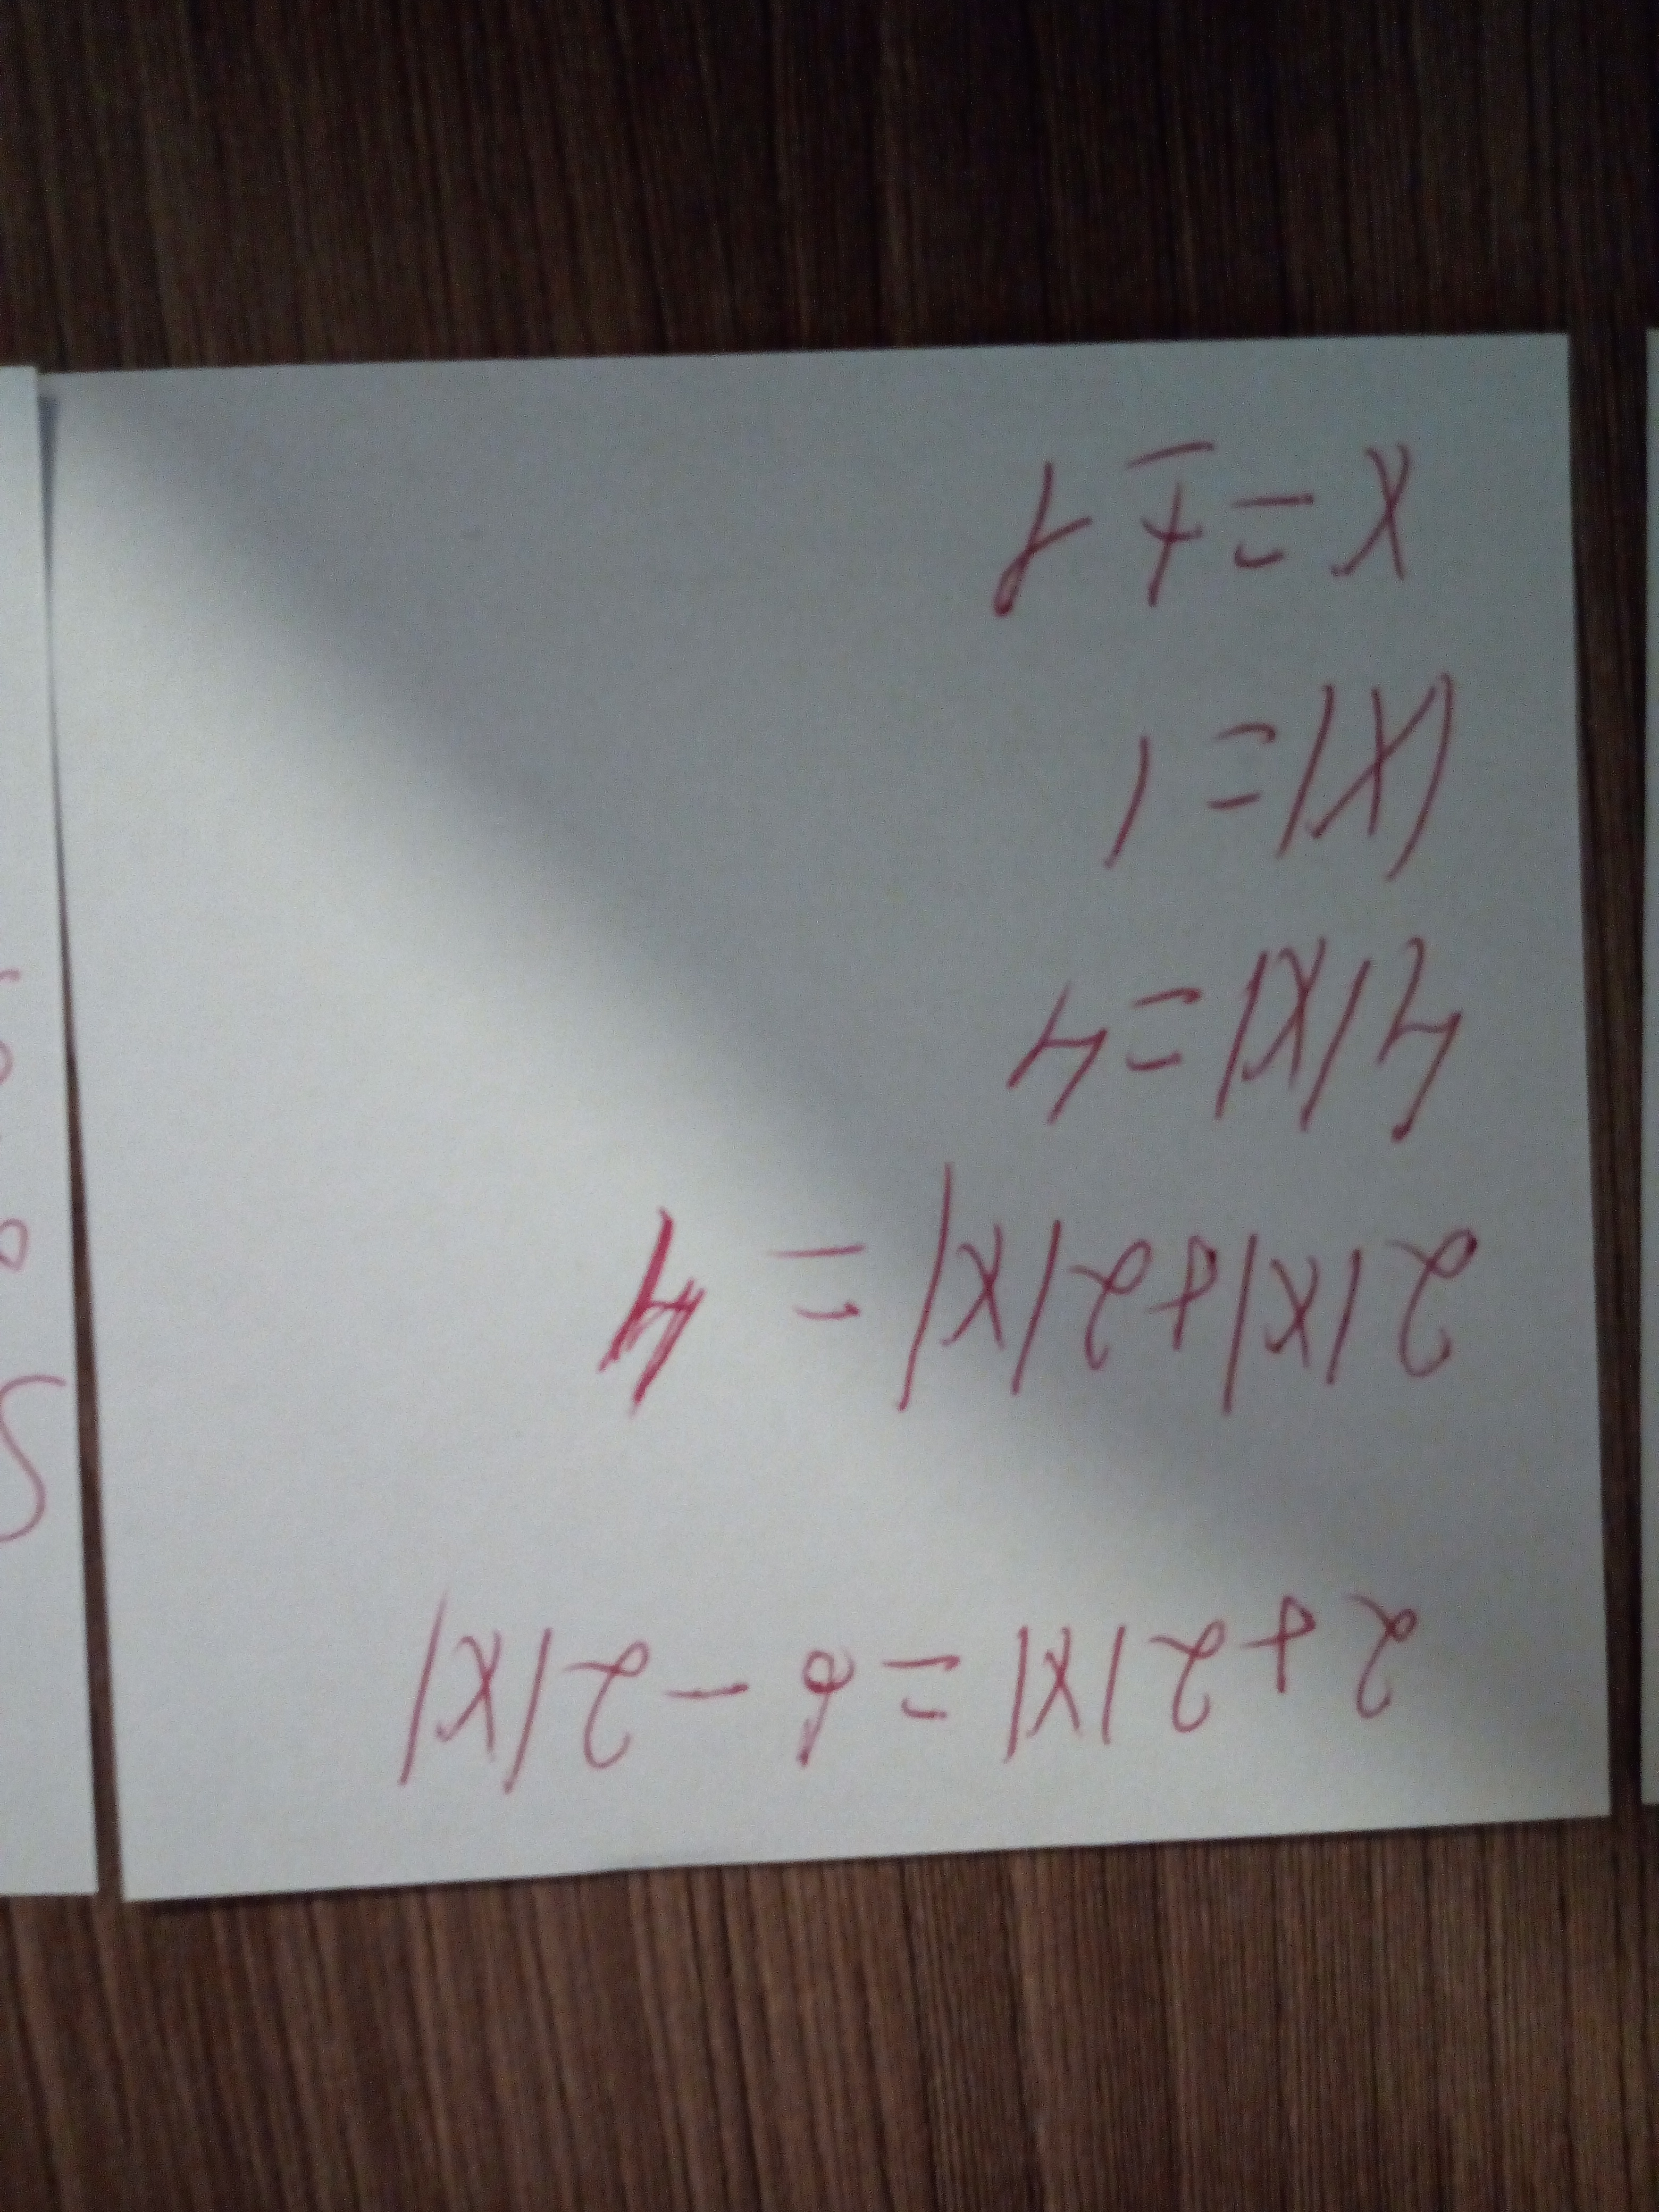 2+2|x|=6-2|x|
2|x|+2|x|=4
4|x|=4
|x|=1
x=±1